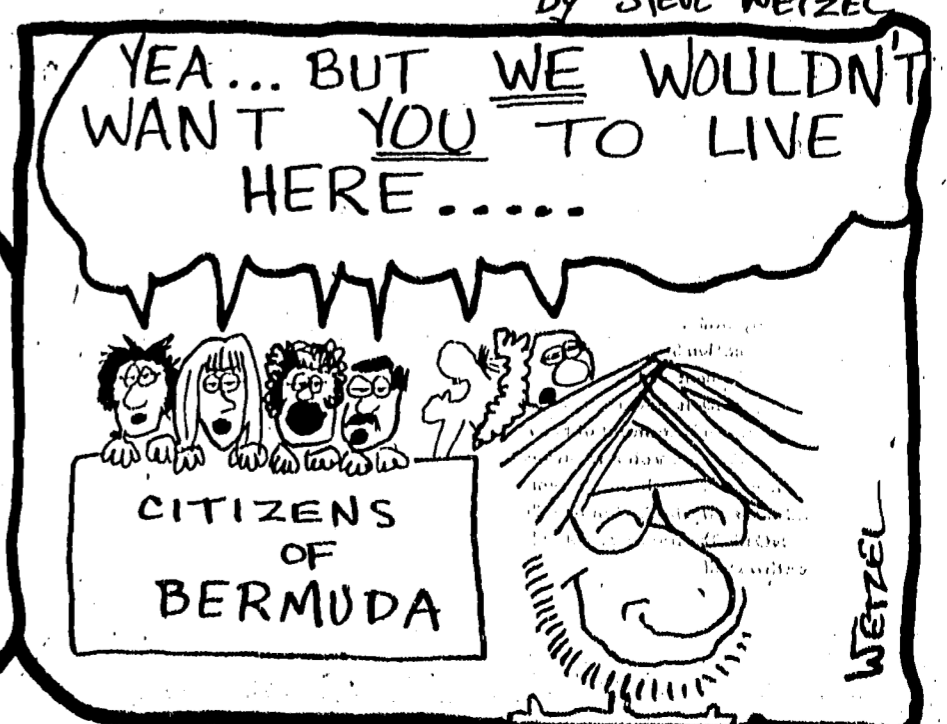 by STEVE WETZEL
YEA... BUT WE WOULDN'T
WANT YOU TO LIVE
HERE.....
CITIZENS
OF
BERMUDA
WETZEL